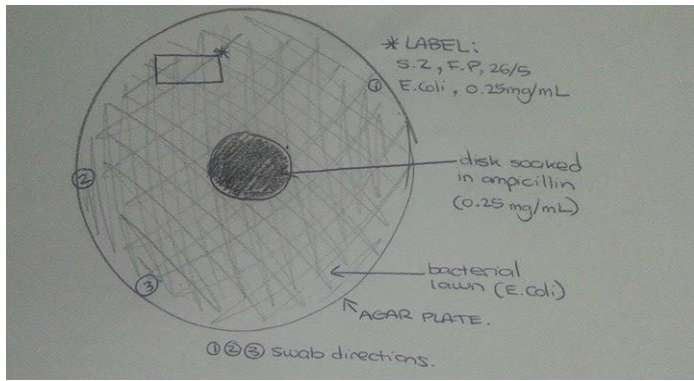 * LABEL:
S.Z, F.P, 26/5
E.Coli, 0.25mg/mL
①
disk soaked
in ampicillin
(0.25 mg/mL)
②
③
bacterial
lawn (E.Coli)
AGAR PLATE.
①②③ swab directions.